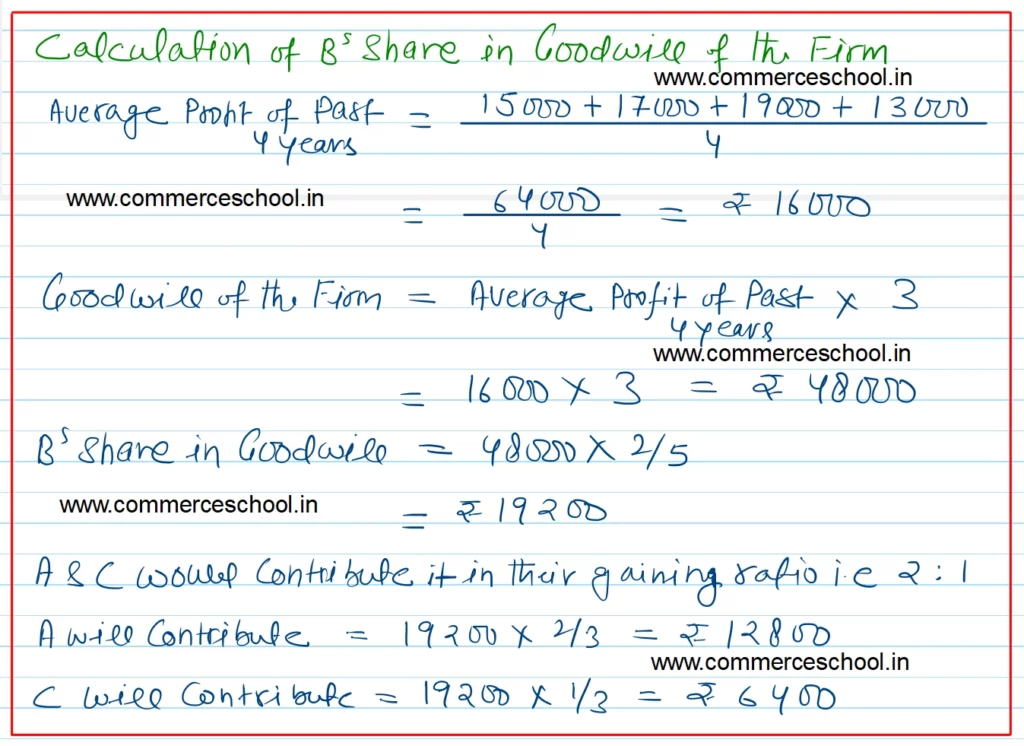 Calculation of Bs Share in Goodwill of the Firm
www.commerceschool.in
Average Profit of Past 4 years = 15000 + 17000 + 19000 + 13000 / 4
www.commerceschool.in
= 64000 / 4 = ₹ 16000
Goodwill of the Firm = Average Profit of Past 4 years × 3
www.commerceschool.in
= 16000 × 3 = ₹ 48000
Bs Share in Goodwill = 48000 × 2/5
www.commerceschool.in
= ₹ 19200
A & C would Contribute it in their gaining ratio i.e 2 : 1
A will Contribute = 19200 × 2/3 = ₹ 12800
www.commerceschool.in
C will Contribute = 19200 × 1/3 = ₹ 6400